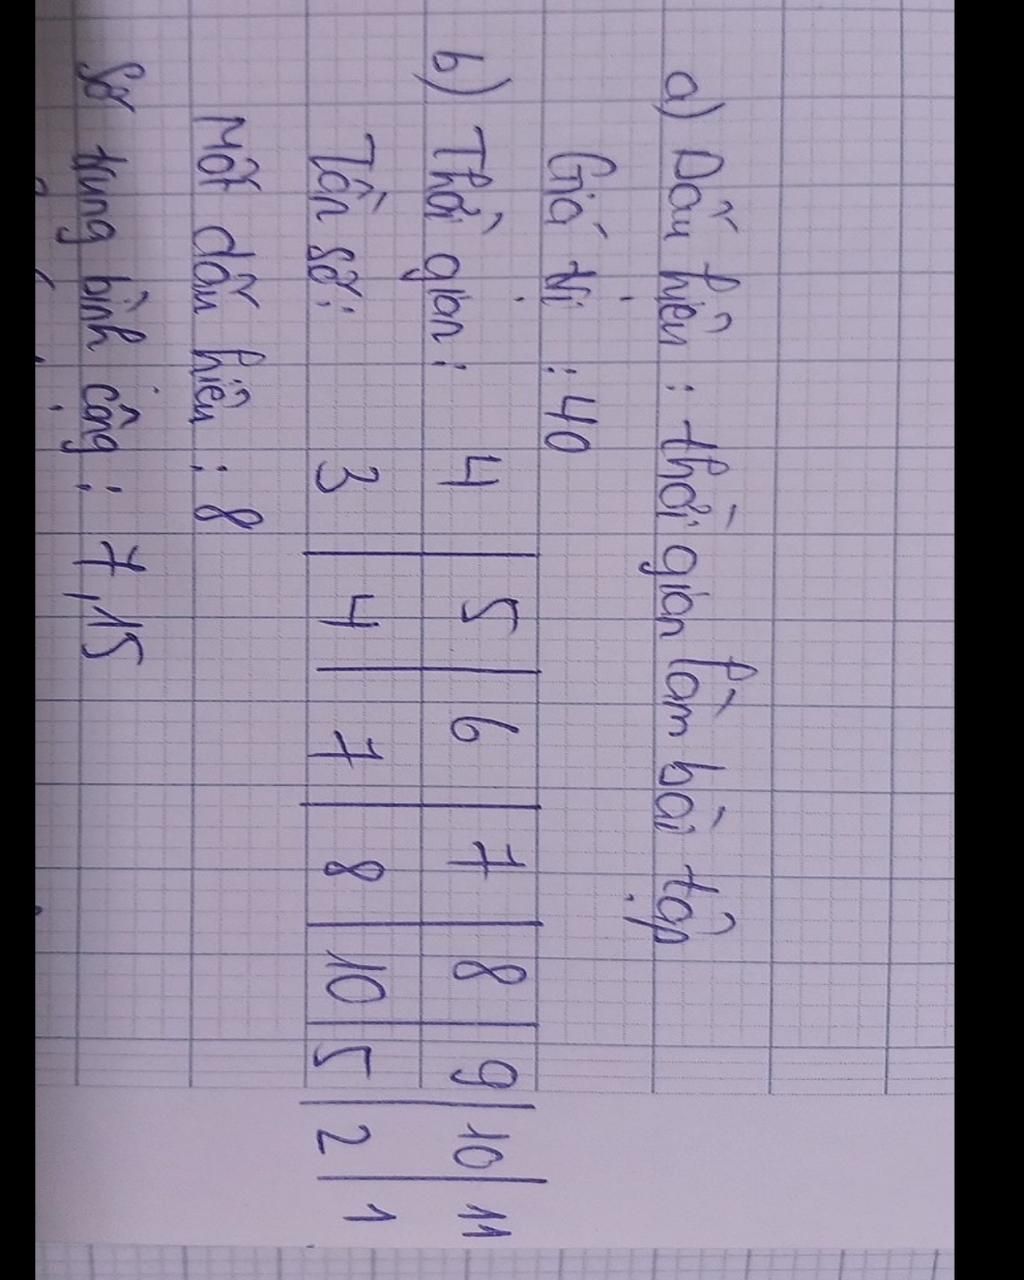 a) Dấu hiệu : thời gian làm bài tập
Giá trị : 40
b) Thời gian : 4 | 5 | 6 | 7 | 8 | 9 | 10 | 11
Tần số : 3 | 4 | 7 | 8 | 10 | 5 | 2 | 1
Mốt dấu hiệu : 8
Số trung bình cộng : 7,15